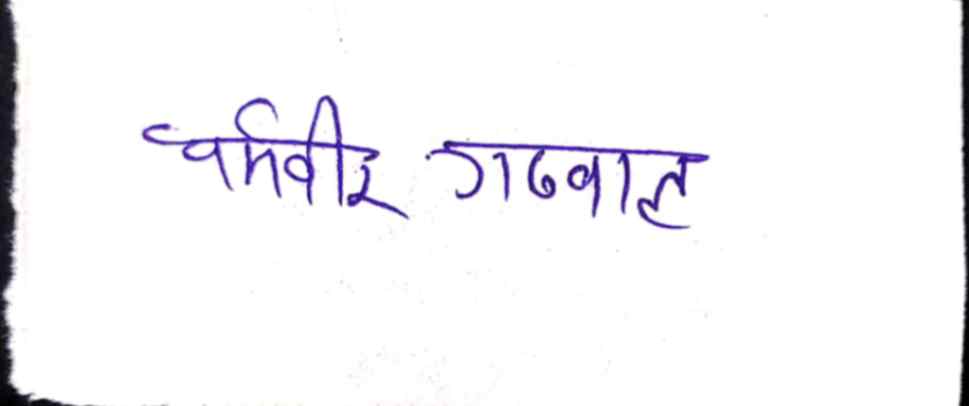 धर्मवीर गढवाल